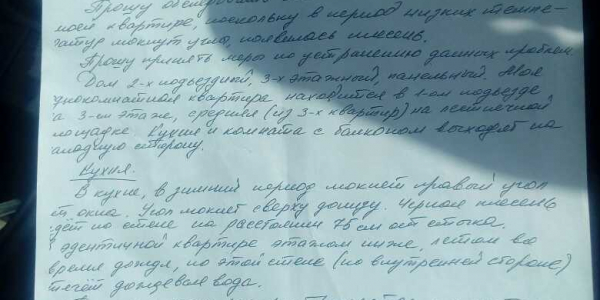 Прошу
моей квартире, поскольку в период низких темпе-
ратур мокнут углы, появилась плесень.
Прошу принять меры по устранению данных проблем.
Дом 2-х подъездный, 3-х этажный, панельный. Моя
днокомнатная квартира находится в 1-ом подъезде
а 3-ем этаже, средняя (из 3-х квартир) на лестничной
лощадке. Кухня и комната с балконом выходят на
ападную сторону.
Кухня.
В кухне, в зимний период мокнет правый угол
т окна. Угол мокнет сверху донизу. Черная плесень
дёт по стене на расстоянии 75 см от стыка.
идентичной квартире этажом ниже, летом во
время дождя, по этой стене (по внутренней стороне)
течёт дождевая вода.